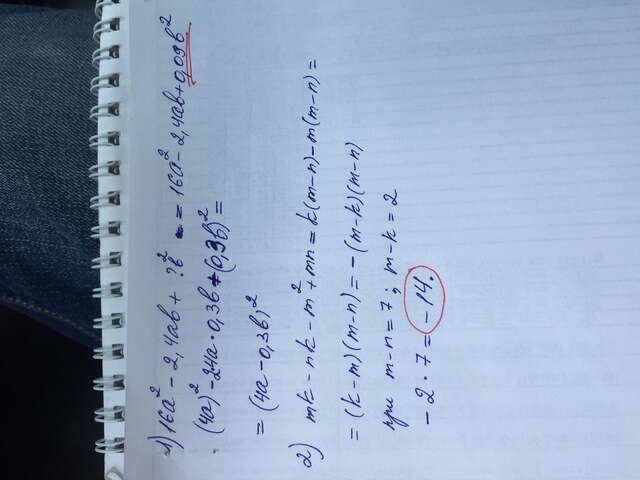 1) 16a² - 2,4ab + ?b² = 16a² - 2,4ab + 0,09b²
(4a)² - 2·4a·0,3b + (0,3b)² =
= (4a - 0,3b)²
2) mk - nk - m² + mn = k(m-n) - m(m-n) =
= (k-m)(m-n) = -(m-k)(m-n)
при m-n = 7; m-k = 2
- 2 · 7 = -14.